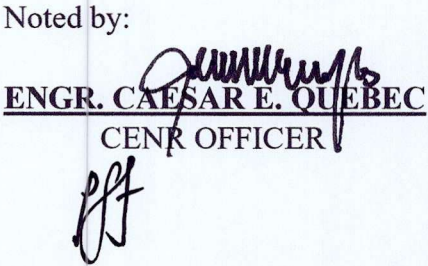 Noted by:
ENGR. CAESAR E. QUEBEC
CENR OFFICER